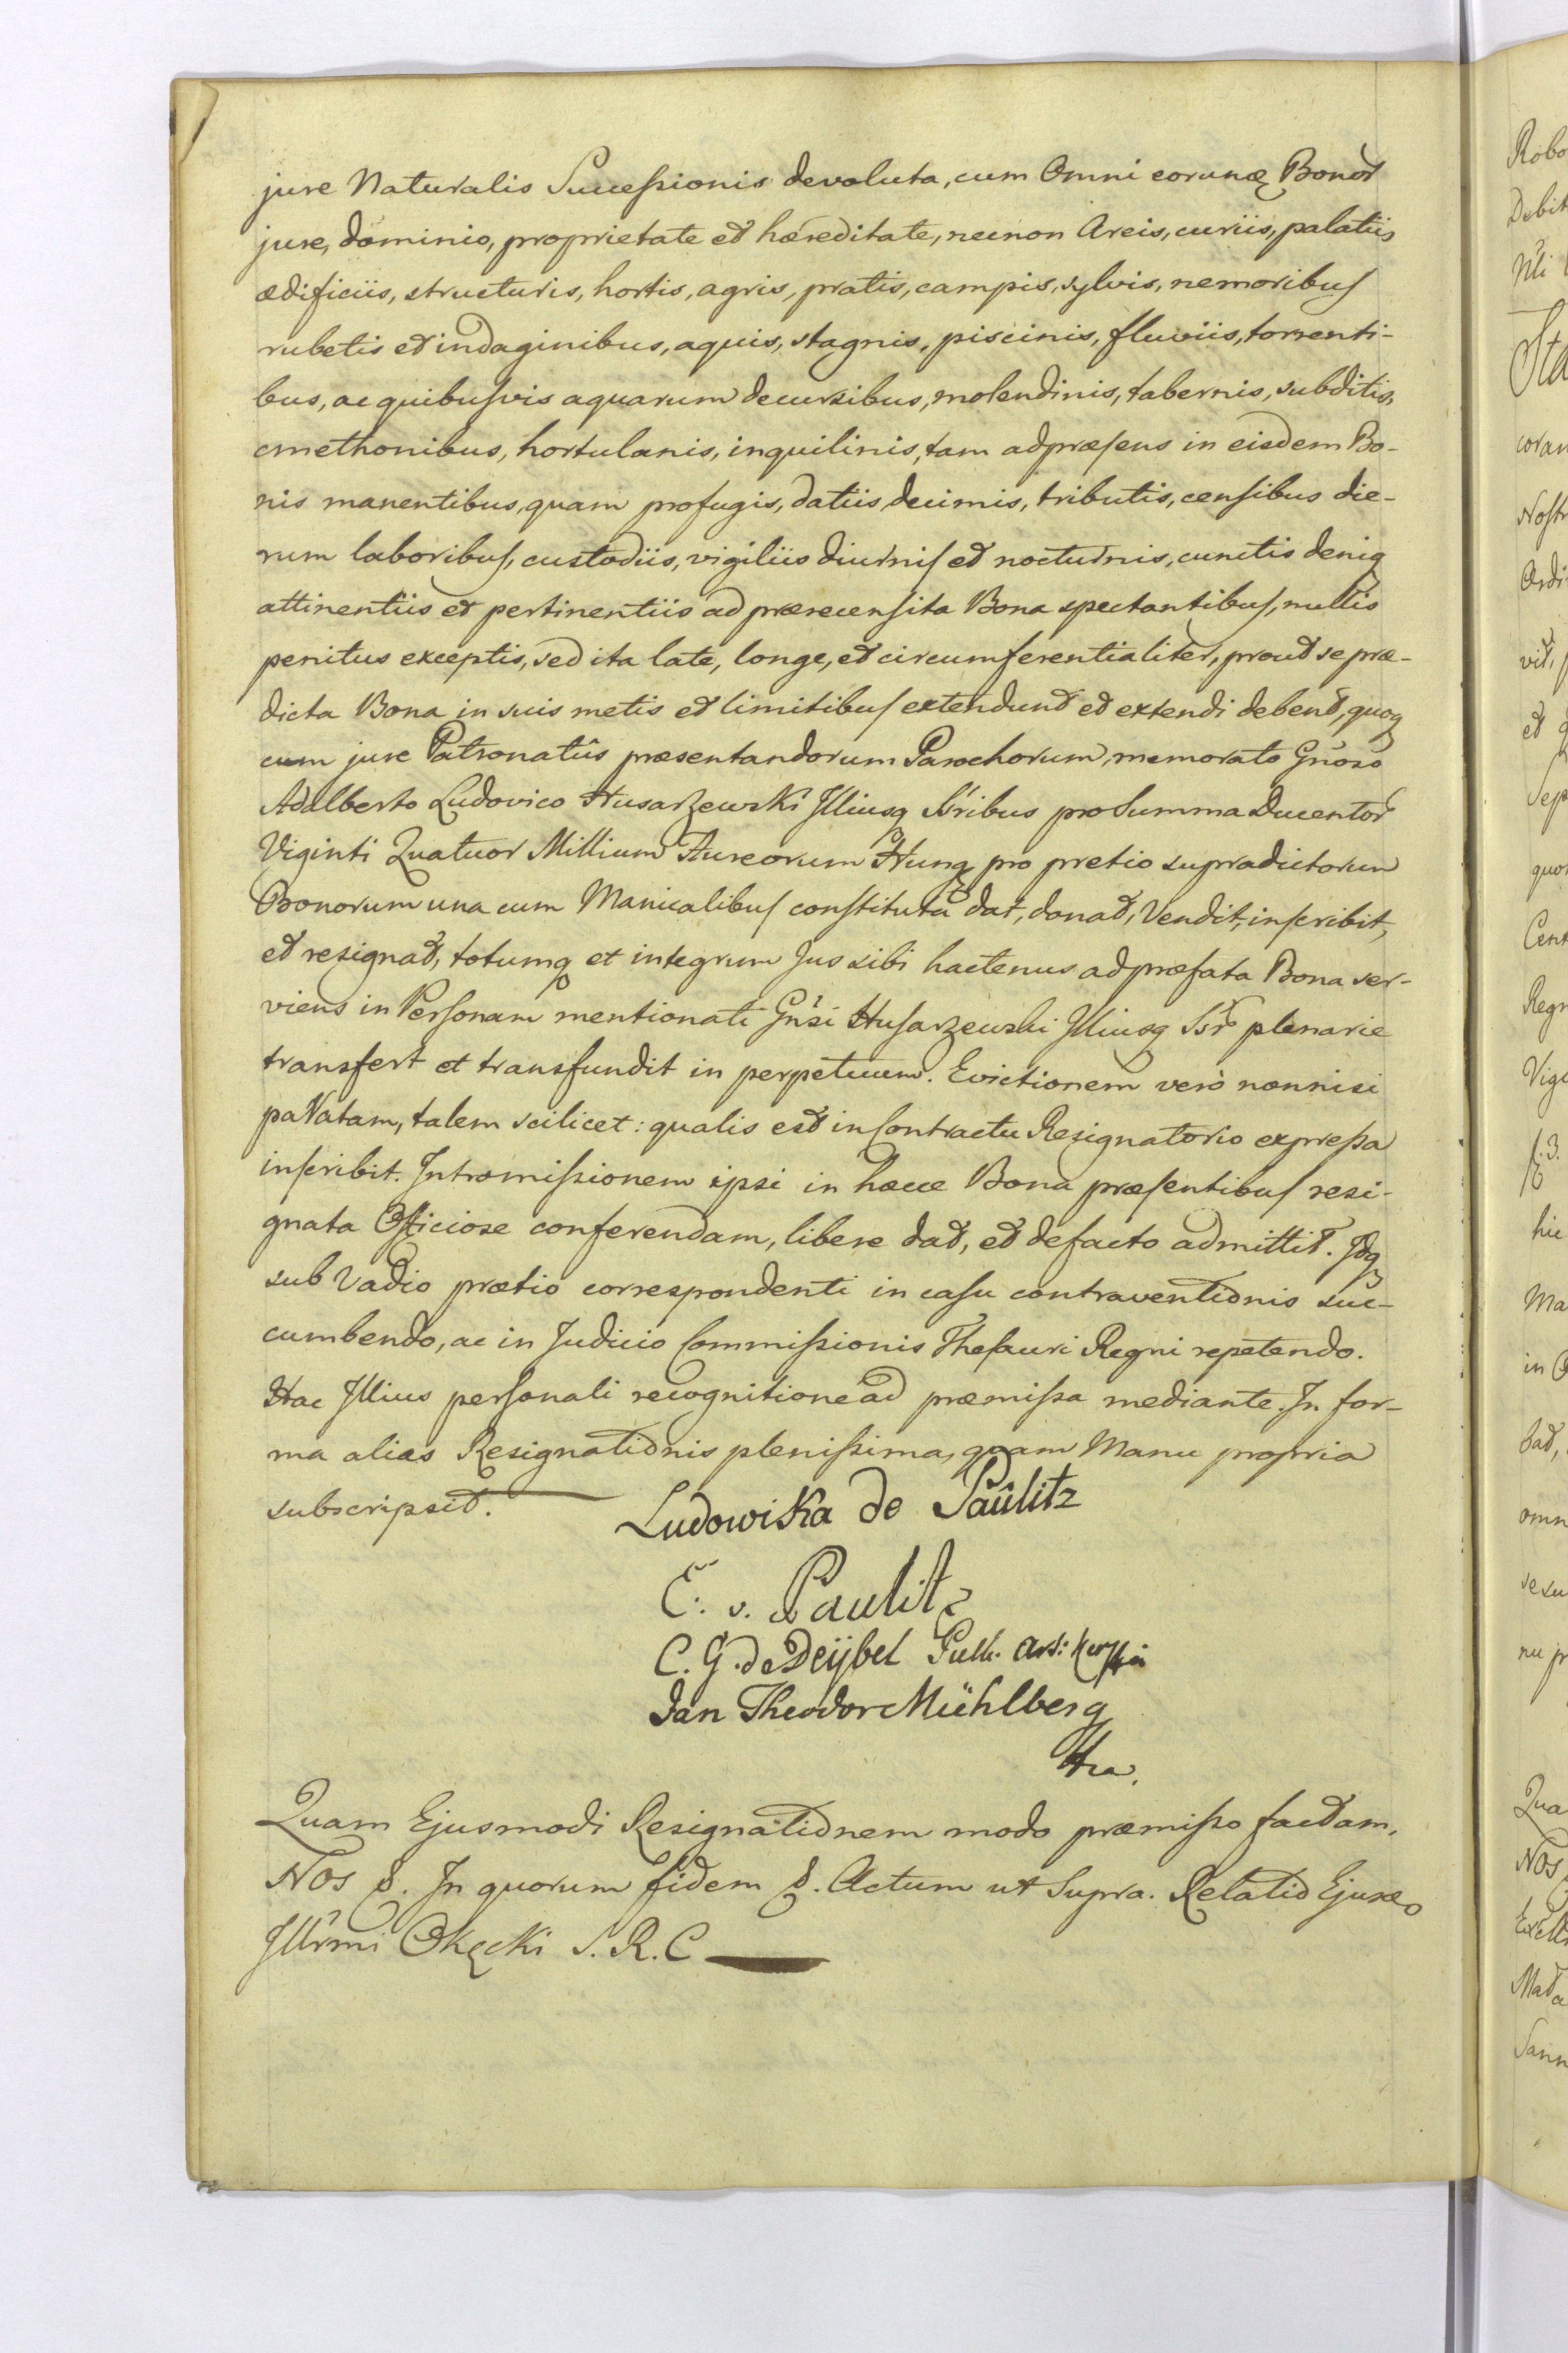 jure Naturalis Successionis devoluta, cum Omni eorundem Bonor
jure, dominio, proprietate et hæreditate, necnon Areis, curiis, palatiis
ædificiis, structuris, hortis, agris, pratis, campis, sylvis, nemoribus
rubetis et indaginibus, aquis, stagnis, piscinis, fluviis, torrenti-
bus, ac quibusvis aquarum decursibus, molendinis, tabernis, subditis,
cmethonibus, hortulanis, inquilinis, tam ad præsens in eisdem Bo-
nis manentibus, quam profugis, datiis, decimis, tributis, censibus die-
rum laboribus, custodiis, vigiliis diurnis et nocturnis, cunctis deniq
attinentiis et pertinentiis ad prærecensita Bona spectantibus, nullis
penitus exceptis, sed ita late, longe, et circumferentialiter, prout se præ-
dicta Bona in suis metis et limitibus extendunt et extendi debent, quoq
cum jure Patronatûs præsentandorum Parochorum, memorato Gnõso
Adalberto Ludovico Husarzewski Illiusq Ssribus pro Summa Ducentor
Viginti Quatuor Millium Aureorum Hung pro pretio supradictorum
Bonorum una cum Manualibus constituta dat, donat, Vendit, inscribit,
et resignat, totumq et integrum Jus sibi hactenus ad præfata Bona ser-
viens in Personam mentionati Gnsi Husarzewski Illiusq Ssr plenarie
transfert et transfundit in perpetuum. Evictionem verò nonnisi
paNatam, talem scilicet: qualis est in Contractu Resignatorio expressa
inscribit. Intromissionem ipsi in hæcce Bona præsentibus resi-
gnata Officiose conferendam, libere dat, et defacto admittit. Idq
sub Vadio prætio correspondenti in casu contraventionis suc-
cumbendo, ac in Judicio Commissionis Thesauri Regni repetendo.
Hac Illius personali recognitione ad præmissa mediante. In for-
ma alias Resignationis plenissima, quam Manu propria
subscripsit. Ludowika de Paulitz
E. v. Paulitz
C. G. de Deÿbel
Jan Theodor Mühlberg
Quam Ejusmodi Resignationem modo præmisso factam,
Nos &. In quorum fidem &. Actum ut Supra. Relatio Ejusdem
Illrmi Okęcki S. R. C